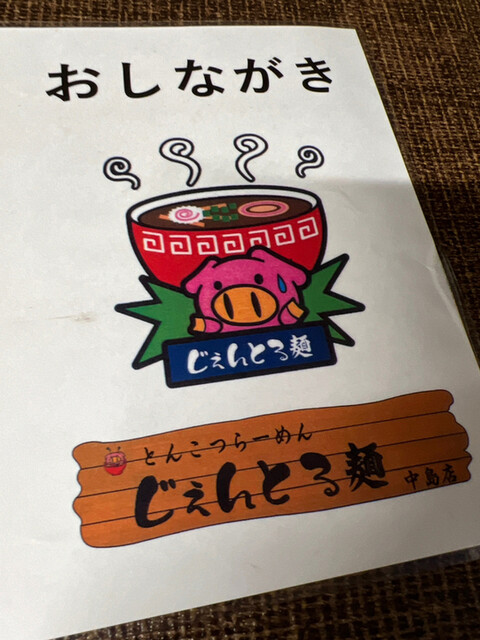 おしながき
じぇんとる麺
とんこつらーめん
じぇんとる麺 中島店